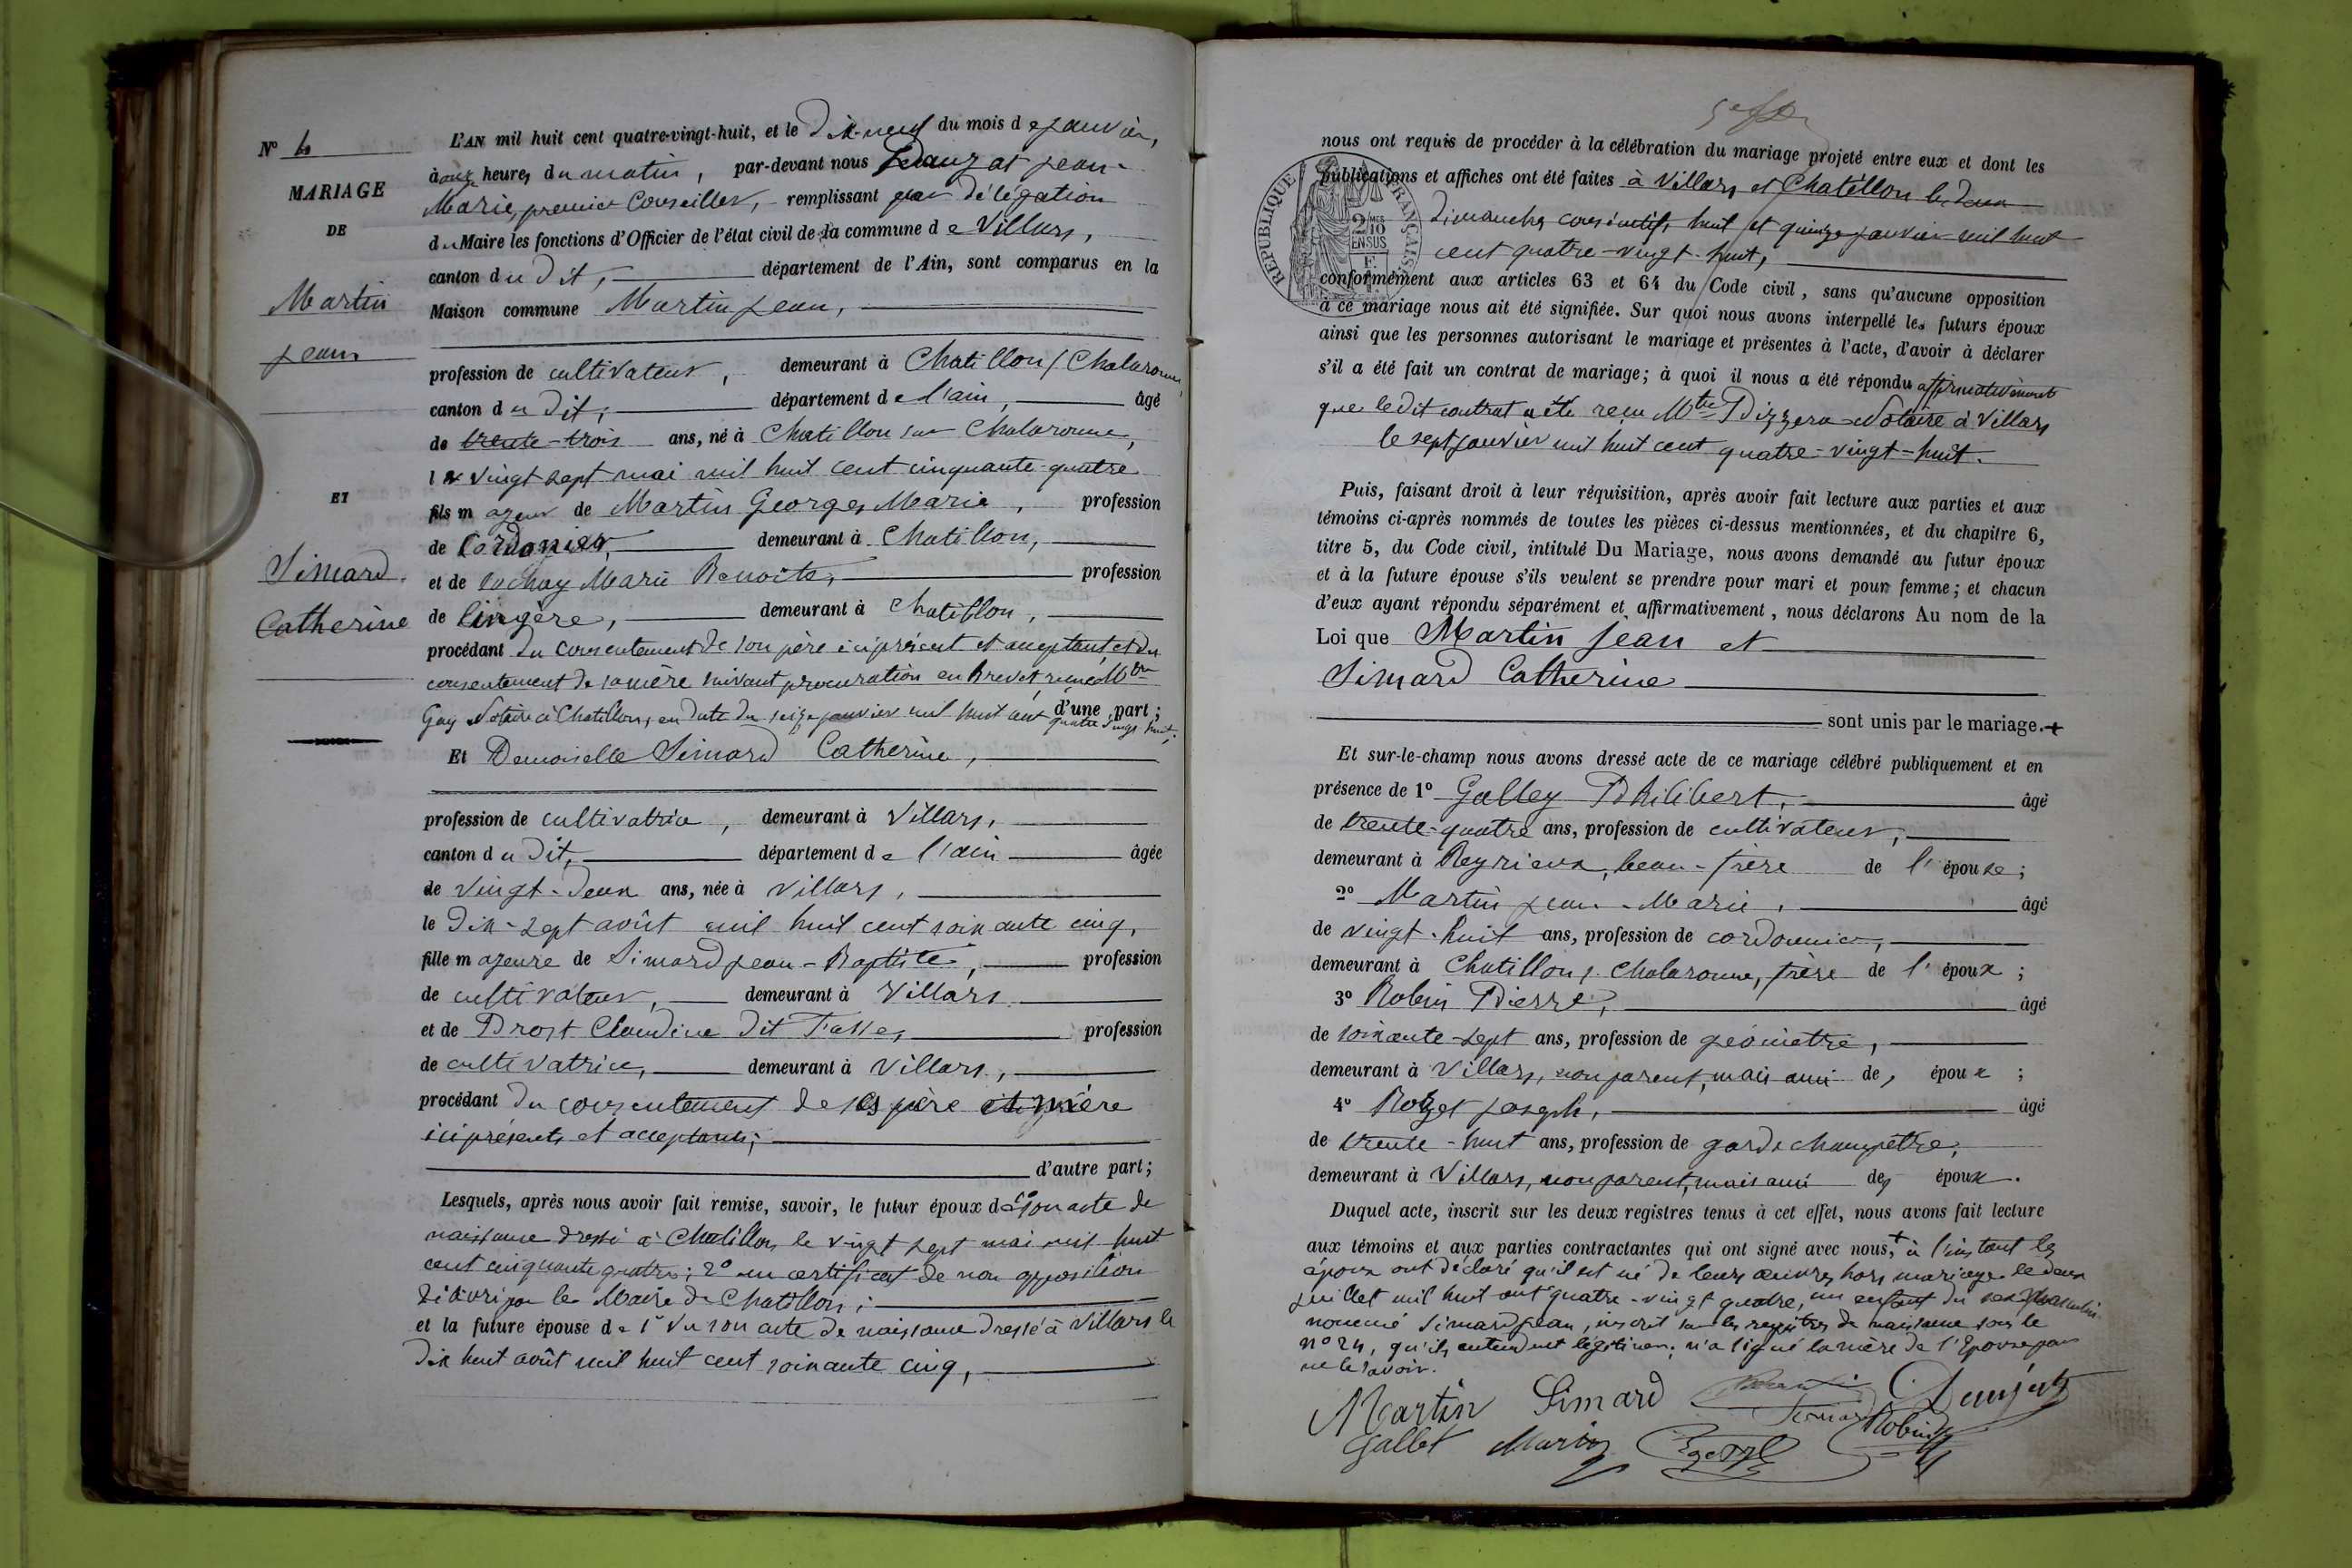 N° 4
MARIAGE
DE
Martin
Jean
ET
Simard
Catherine
L'AN mil huit cent quatre-vingt-huit, et le Dix-neuf du mois de janvier,
à onze heures du matin, par-devant nous Danjat Jean-
Marie, premier Conseiller, remplissant par délégation
du Maire les fonctions d'Officier de l'état civil de la commune de Villars,
canton du dit, département de l'Ain, sont comparus en la
Maison commune Martin Jean,
profession de cultivateur, demeurant à Chatillon s/ Chalaronne,
canton du dit, département de l'ain, âgé
de trente-trois ans, né à Chatillon sur Chalaronne,
le vingt sept mai mil huit cent cinquante-quatre
fils majeur de Martin Georges Marie, profession
de Cordonier, demeurant à Chatillon,
et de Marie Benoite, profession
de lingère, demeurant à Chatillon,
procédant du consentement de son père ici présent et acceptant et du
consentement de sa mère suivant procuration en brevet reçue Mtre
Gay Notaire à Chatillon, en date du seize janvier mil huit cent quatre vingt huit, d'une part;
Et Demoiselle Simard Catherine,
profession de cultivatrice, demeurant à Villars,
canton du dit, département de l'ain âgée
de vingt-deux ans, née à Villars,
le dix-sept août mil huit cent soixante cinq,
fille majeure de Simard Jean-Baptiste, profession
de cultivateur, demeurant à Villars
et de Drost Claudine dit profession
de cultivatrice, demeurant à Villars,
procédant du consentement de ses père et mère
ici présents et acceptants;
d'autre part;
Lesquels, après nous avoir fait remise, savoir, le futur époux de 1° son acte de
naissance dressé à Chatillon le vingt sept mai mil huit
cent cinquante quatre; 2° un certificat de non opposition
délivré par le Maire de Chatillon;
et la future épouse de 1° du son acte de naissance dressé à Villars le
dix huit août mil huit cent soixante cinq,
nous ont requis de procéder à la célébration du mariage projeté entre eux et dont les
publications et affiches ont été faites à Villars et Chatillon les deux
dimanches consécutifs huit et quinze janvier mil huit
cent quatre-vingt-huit,
RÉPUBLIQUE FRANÇAISE
2/10
EN SUS
conformément aux articles 63 et 64 du Code civil, sans qu'aucune opposition
à ce mariage nous ait été signifiée. Sur quoi nous avons interpellé les futurs époux
ainsi que les personnes autorisant le mariage et présentes à l'acte, d'avoir à déclarer
s'il a été fait un contrat de mariage; à quoi il nous a été répondu affirmativement
que le dit contrat a été reçu Mtre Notaire à Villars
le sept janvier mil huit cent quatre-vingt-huit.
Puis, faisant droit à leur réquisition, après avoir fait lecture aux parties et aux
témoins ci-après nommés de toutes les pièces ci-dessus mentionnées, et du chapitre 6,
titre 5, du Code civil, intitulé Du Mariage, nous avons demandé au futur époux
et à la future épouse s'ils veulent se prendre pour mari et pour femme; et chacun
d'eux ayant répondu séparément et affirmativement, nous déclarons Au nom de la
Loi que Martin Jean et
Simard Catherine
sont unis par le mariage. +
Et sur-le-champ nous avons dressé acte de ce mariage célébré publiquement et en
présence de 1° Galley Philibert, âgé
de trente-quatre ans, profession de cultivateur,
demeurant à Reyrieux, beau-frère de l'épouse;
2° Martin Jean-Marie, âgé
de vingt-huit ans, profession de cordonnier,
demeurant à Chatillon s. Chalaronne, frère de l'époux;
3° Robin Pierre, âgé
de soixante-sept ans, profession de géomètre,
demeurant à Villars, non parent, mais ami des époux;
4° Joseph, âgé
de trente-huit ans, profession de garde champêtre,
demeurant à Villars, non parent, mais ami des époux.
Duquel acte, inscrit sur les deux registres tenus à cet effet, nous avons fait lecture
aux témoins et aux parties contractantes qui ont signé avec nous, + à l'instant les
époux ont déclaré qu'il est né de leurs œuvres hors mariage le deux
juillet mil huit cent quatre-vingt quatre, un enfant du sexe masculin
nommé Simard Jean, inscrit sur les registres de naissance sous le
N° 24, qu'ils entendent légitimer; n'a signé la mère de l'Epouse pour
ne le savoir.
Martin Simard Danjat
Simard Robin
Gallet Martin